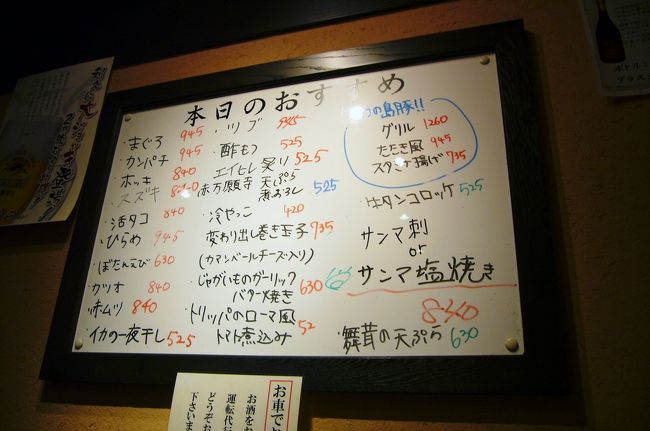 本日のおすすめ
・まぐろ 945
・カンパチ 945
・ホッキ 840
・スズキ 840
・活タコ 840
・ひらめ 945
・ぼたんえび 630
・カツオ 840
・赤ムツ 840
・イカの一夜干し 525
・ツブ 945
・酢もつ 525
・エイヒレ炙り 525
・赤万願寺 天ぷら
煮おろし 525
・冷やっこ 420
・変わり出し巻き玉子 735
(カマンベールチーズ入り)
・じゃがいものガーリック
バター焼き 630
・トリッパのローマ風
トマト煮込み 52
つの島豚!!
グリル 1260
たたき風 945
スタミナ揚げ 735
・牛タンコロッケ 525
サンマ刺
or
サンマ塩焼き
840
・舞茸の天ぷら 630
お車で
お酒を
運転代行
どうぞお
下さいま